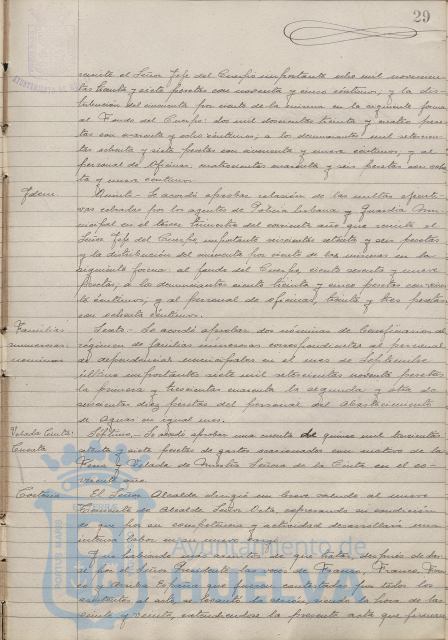 29
remite el Señor Jefe del Cuerpo importante ocho mil novecien-
tas treinta y siete pesetas con noventa y cinco céntimos, y la dis-
tribución del cincuenta por ciento de la misma en la siguiente forma:
al Fondo del Cuerpo: dos mil doscientas treinta y cuatro pese-
tas con cuarenta y ocho céntimos; a los denunciantes mil setecien-
tas ochenta y siete pesetas con cincuenta y nueve céntimos, y al
personal de Oficinas cuatrocientas cuarenta y seis pesetas con ochen-
ta y nueve céntimos.
Idem. Quinto.- Se acordó aprobar relación de las multas efecti-
vas cobradas por los agentes de Policía Urbana y Guardia Mu-
nicipal en el tercer trimestre del corriente año que remite el
Señor Jefe del Cuerpo, importante seiscientas setenta y seis pesetas
y la distribución del cincuenta por ciento de las mismas en la
siguiente forma: al fondo del Cuerpo, ciento sesenta y nueve
pesetas; a los denunciantes ciento treinta y cinco pesetas con vein-
te céntimos; y al personal de oficinas, treinta y tres pesetas
con ochenta céntimos.
Familias Sexto.- Se acordó aprobar dos nóminas de beneficiarios del
numerosas régimen de familias numerosas correspondientes al personal
nóminas de dependencias municipales en el mes de Septiembre
último importantes siete mil setecientas noventa pesetas
la primera y trescientas cuarenta la segunda y otra de
seiscientas diez pesetas del personal del Abastecimiento
de Aguas en igual mes.
Velada Cinta: Séptimo.- Se acordó aprobar una cuenta de quince mil trescientas
Cuenta treinta y siete pesetas de gastos ocasionados con motivo de la
Feria y Velada de Nuestra Señora de la Cinta en el co-
rriente año.
Cortesía El Señor Alcalde dirigió un breve saludo al nuevo
Teniente de Alcalde Señor Vota, esperando su condición
es que por su competencia y actividad desarrollará una
intensa labor en su nuevo cargo.
Y no habiendo más asuntos de que tratar, después de da-
das por el Señor Presidente las voces de Franco, Franco, Fran-
co y Arriba España que fueron contestadas por todos los
asistentes al acto, se levantó la sesión, siendo la hora de las
veinte y veinte, extendiéndose la presente acta que firman
Ayuntamiento de
HUELVA